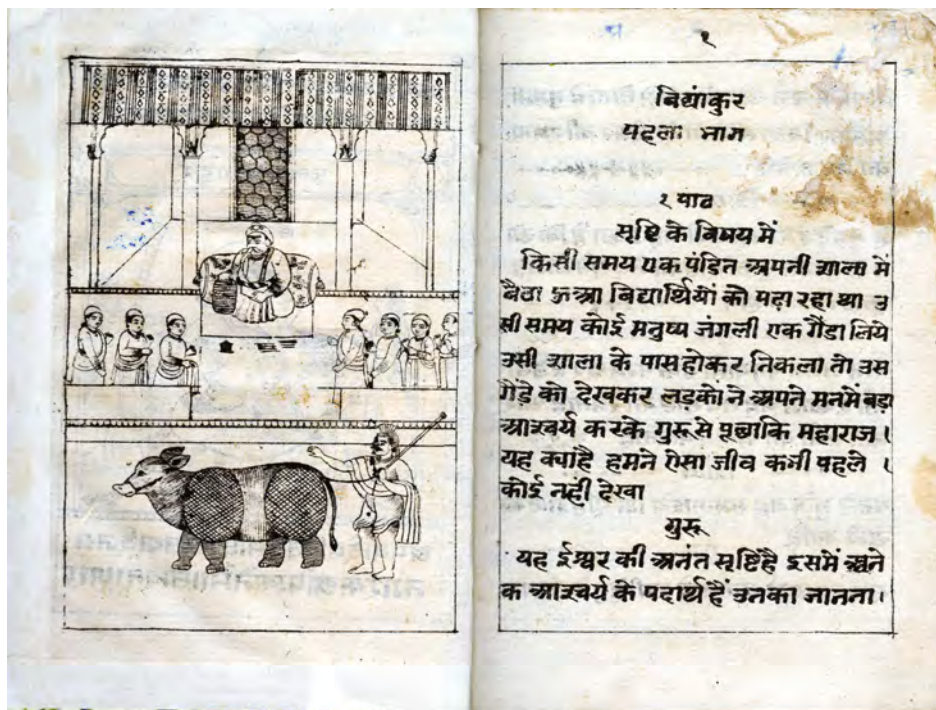 १
बिद्यांकुर
पहला भाग
१ पाठ
सृष्टि के बिषय में
किसी समय एक पंडित अपनी शाला में
बैठा ऊआ बिद्यार्थियों को पढ़ा रहा था उ
सी समय कोई मनुष्य जंगली एक गैंडा लिये
उसी शाला के पास होकर निकला तो उस
गैंडे को देखकर लड़कों ने अपने मनमें बड़ा
आश्चर्य करके गुरू से पूछाकि महाराज ।
यह क्या है हमने ऐसा जीव कभी पहले ।
कोई नहीं देखा
गुरू
यह ईश्वर की अनंत सृष्टि है इसमें अने
क आश्चर्य के पदार्थ हैं उनका जानना ।